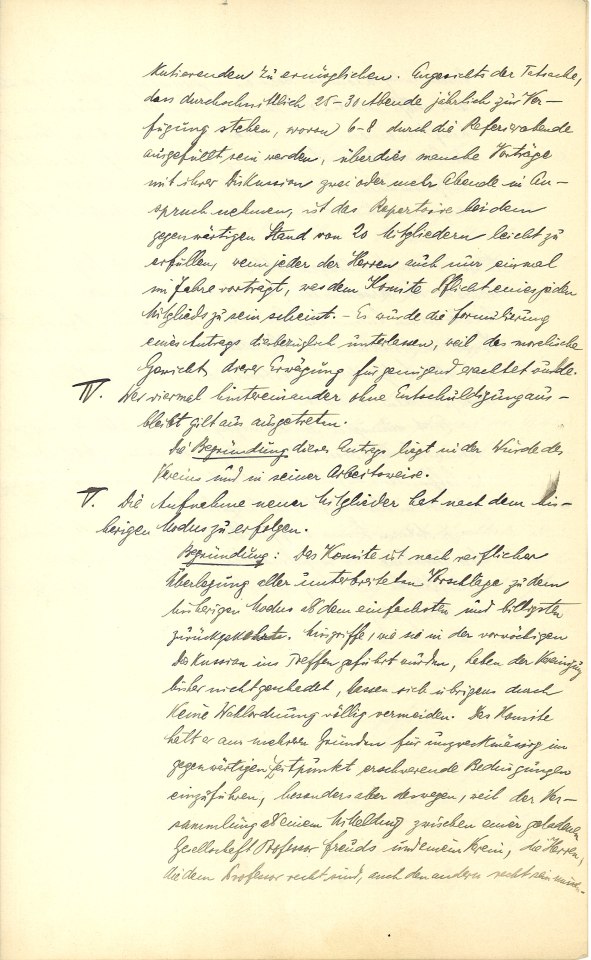 kutierenden zu ermöglichen. Angesichts der Tatsache,
dass durchschnittlich 25-30 Abende jährlich zur Ver-
fügung stehen, wovon 6-8 durch die Referierabende
ausgefüllt sein werden, überdies manche Vorträge
mit ihrer Diskussion zwei oder mehr Abende in An-
spruch nehmen, ist das Repertoire bei dem
gegenwärtigen Stand von 20 Mitgliedern leicht zu
erfüllen, wenn jeder der Herren auch nur einmal
im Jahre vorträgt, was dem Komite Pflicht eines jeden
Mitglieds zu sein scheint. – Es würde die Formulierung
eines Antrags diesbezüglich unterlassen, weil das moralische
Gewicht dieser Erwägung für genügend erachtet wurde.
IV. Wer viermal hintereinander ohne Entschuldigung aus-
bleibt gilt als ausgetreten.
Die Begründung dieses Antrags liegt in der Würde des
Vereins und in seiner Arbeitsweise.
V. Die Aufnahme neuer Mitglieder hat nach dem bis-
herigen Modus zu erfolgen.
Begründung: Das Komite ist nach reiflicher
Überlegung aller unterbreiteten Vorschläge zu dem
bisherigen Modus als dem einfachsten und billigsten
zurückgekehrt. Missgriffe, wie sie in der vorwöchigen
Diskussion ins Treffen geführt wurden, haben der Vereinigung
bisher nicht geschadet, lassen sich übrigens durch
keine Wahlordnung völlig vermeiden. Das Komite
hält es aus mehreren Gründen für unzweckmässig im
gegenwärtigen Zeitpunkt erschwerende Bedingungen
einzuführen, besonders aber deswegen, weil der Ver-
sammlung als einem Mittelding zwischen einer geladenen
Gesellschaft Professor Freuds und einem Verein, die Herren,
die dem Professor recht sind, auch den andern recht sein müssen.